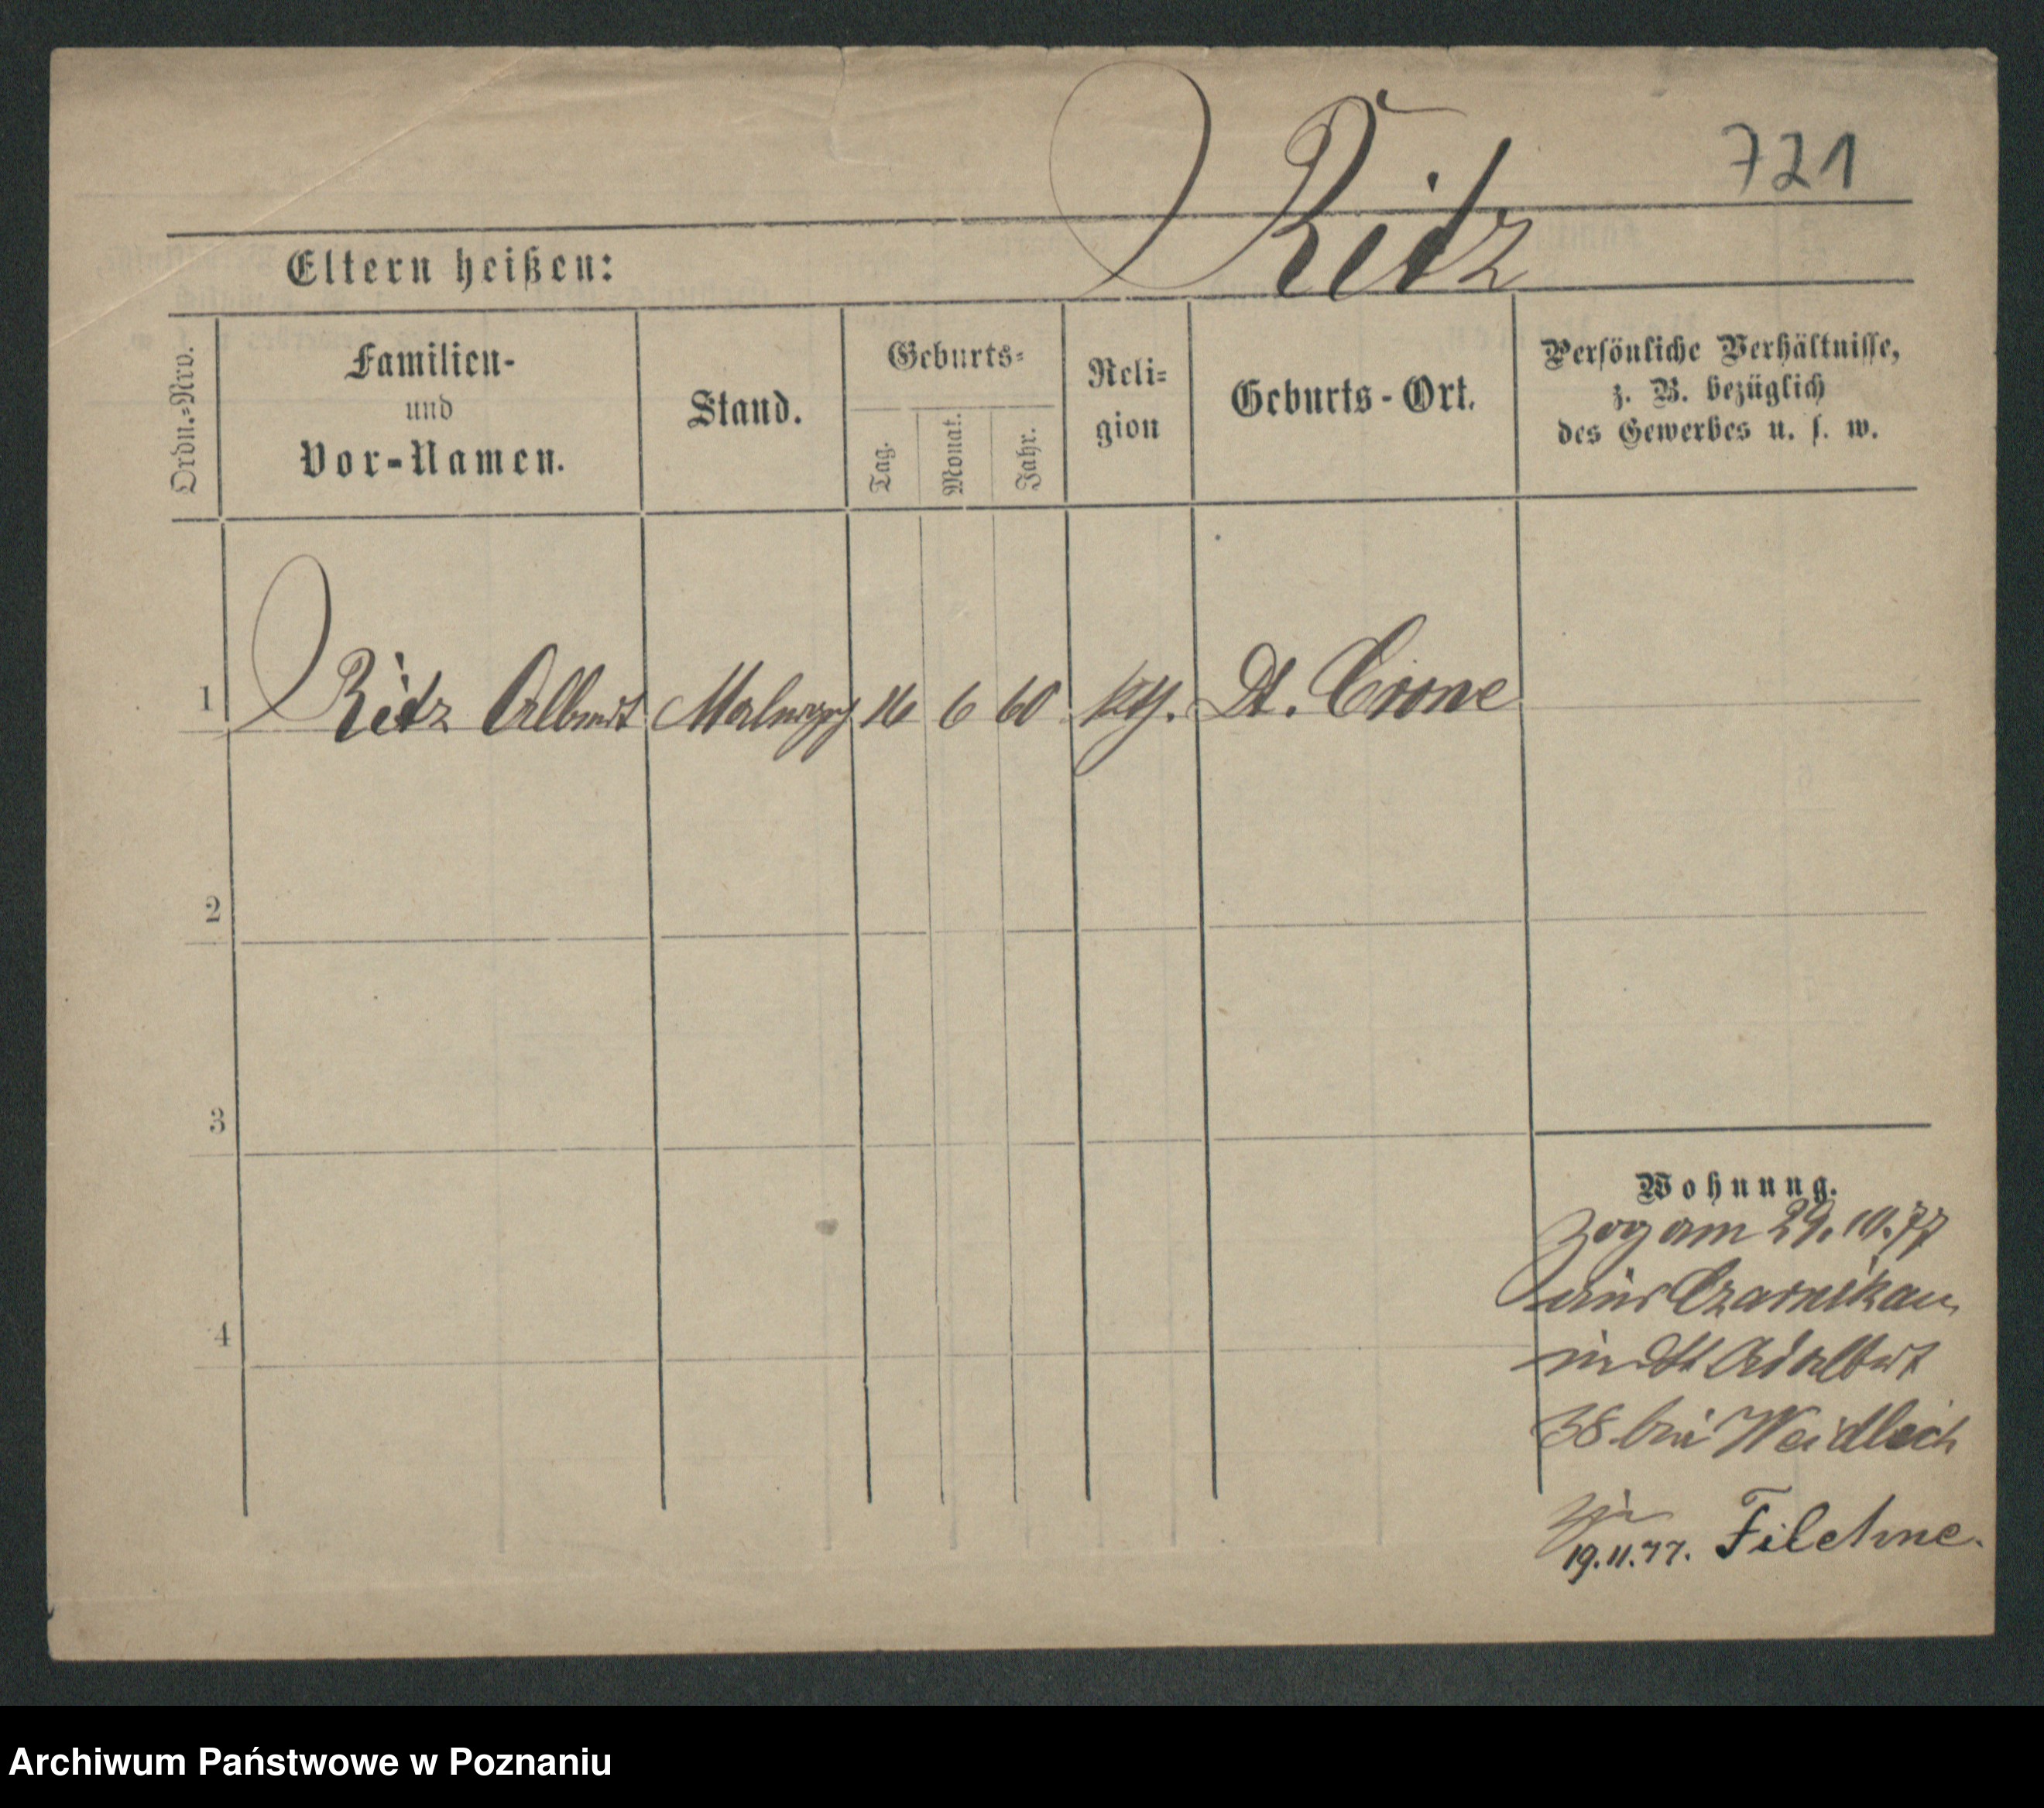 721
Ritz
Eltern heißen:
Ordn.-Nro.
Familien-
und
Vor-Namen.
Stand.
Geburts-
Tag.
Monat.
Jahr.
Reli-
gion
Geburts-Ort.
Persönliche Verhältnisse,
z. B. bezüglich
des Gewerbes u. s. w.
1 Ritz Albert 16 6 60 kth. Dt. Crone
2
3
4
Wohnung.
Zog am 29.10.77
aus Czarnikau
in St Adalbert
38 bei Weidlich
19.11.77. Filehne.
Archiwum Państwowe w Poznaniu